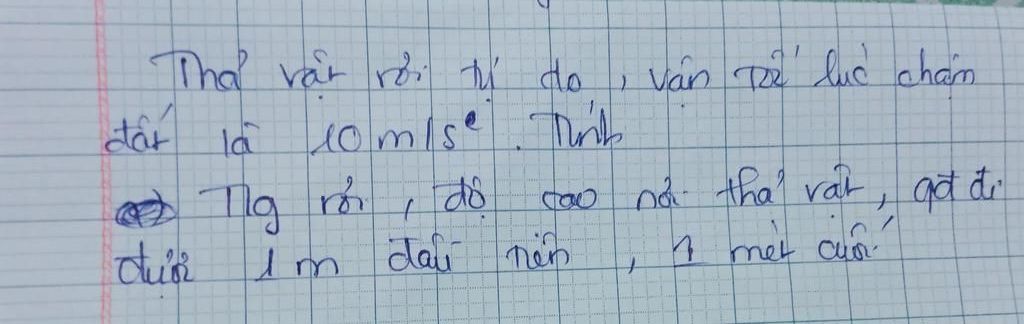 Thả vật rơi tự do, vận tốc lúc chạm
đất là 10 m/s². Tính
Tg rơi, độ cao nơi thả vật, qđ đi
được 1 m đầu tiên, 1 mét cuối